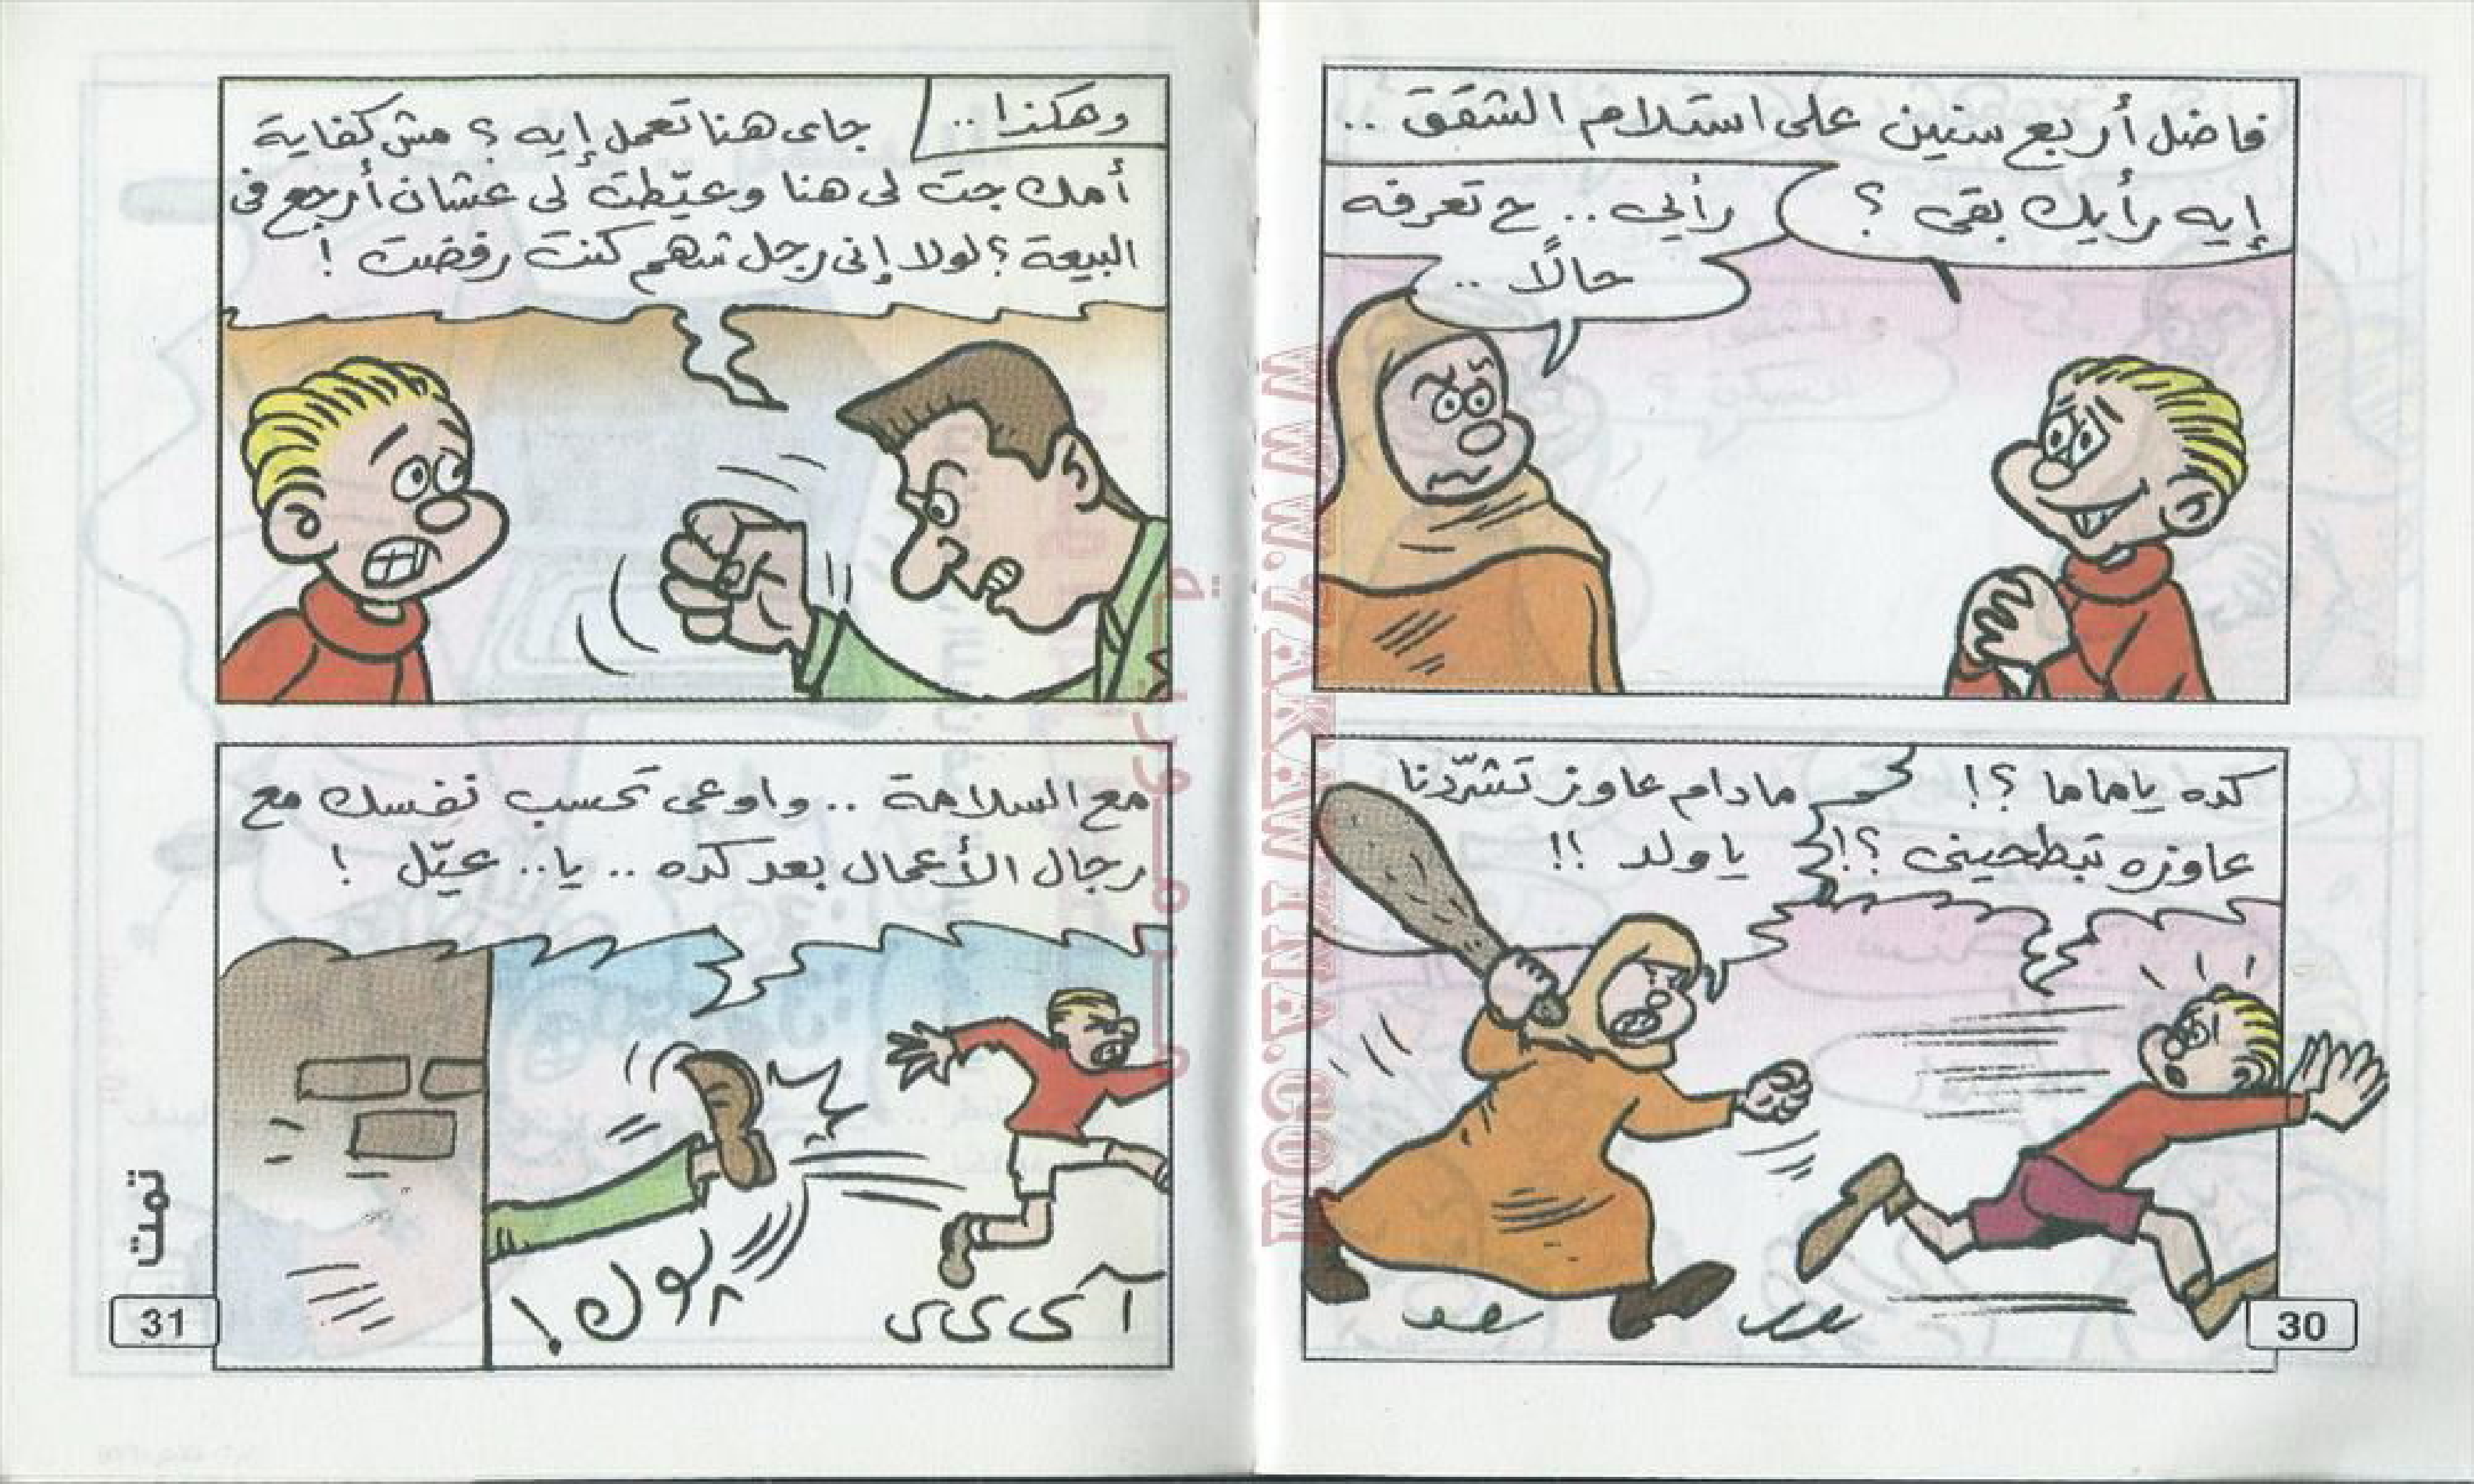 فاضل أربع سنين على استلام الشقق ..
إيه رأيك بقى ؟
رأيي .. ح تعرفه
حالًا ..
كده ياماما ؟!
عاوزه تبطحينى ؟!
مادام عاوز تشرّدنا
ياولد !!
30
وهكذا ..
جاى هنا تعمل إيه ؟ مش كفاية
أمك جت لى هنا وعيّطت لى عشان أرجع فى
البيعة ؟ لولا إنى رجل شهم كنت رفضت !
مع السلامة .. واوعى تحسب نفسك مع
رجال الأعمال بعد كده .. يا .. عيّل !
اى ى ى
تمت
31